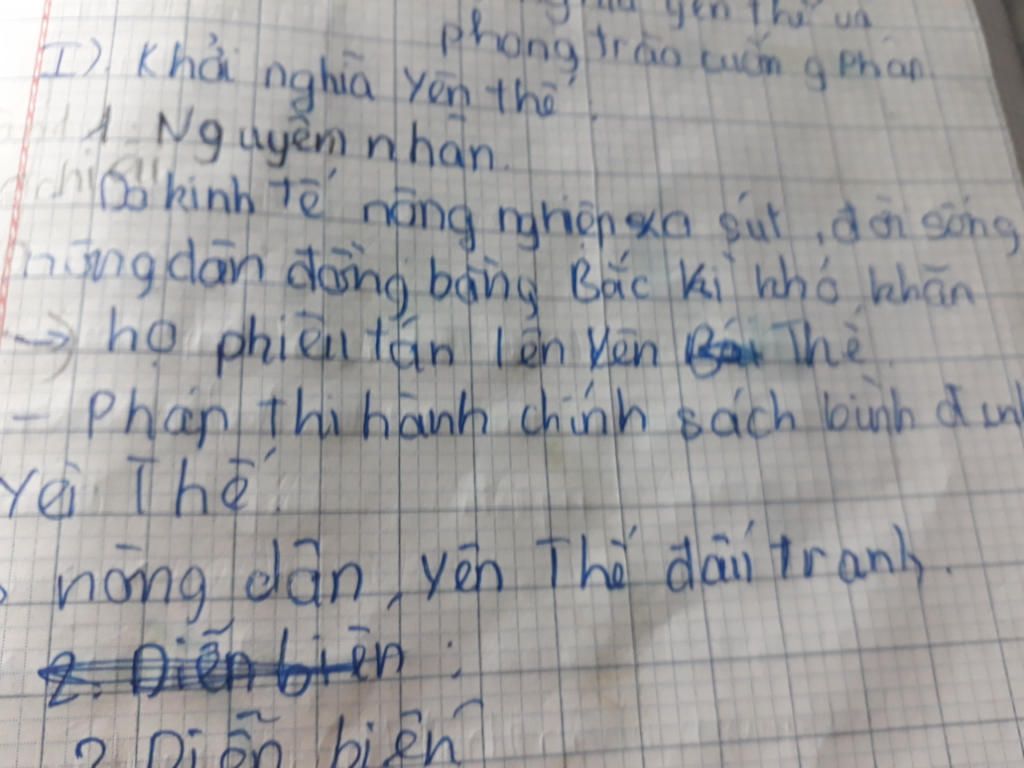 yên thế và
phong trào cuốn g phán
I) Khởi nghĩa Yên thế.
1. Nguyêm nhân.
Do kinh tế nông nghiệp xa sút, đời sống
nông dân đồng bằng Bắc Kì khó khăn
→ họ phiêu tán lên Yên Thế.
- Pháp thi hành chính sách bình định
Yêi Thế.
nông dân, Yên Thế đấu tranh.
2. Diễn biên :
2 Diễn biến